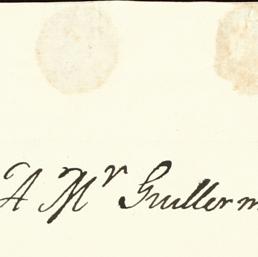 A Mr Guillerm